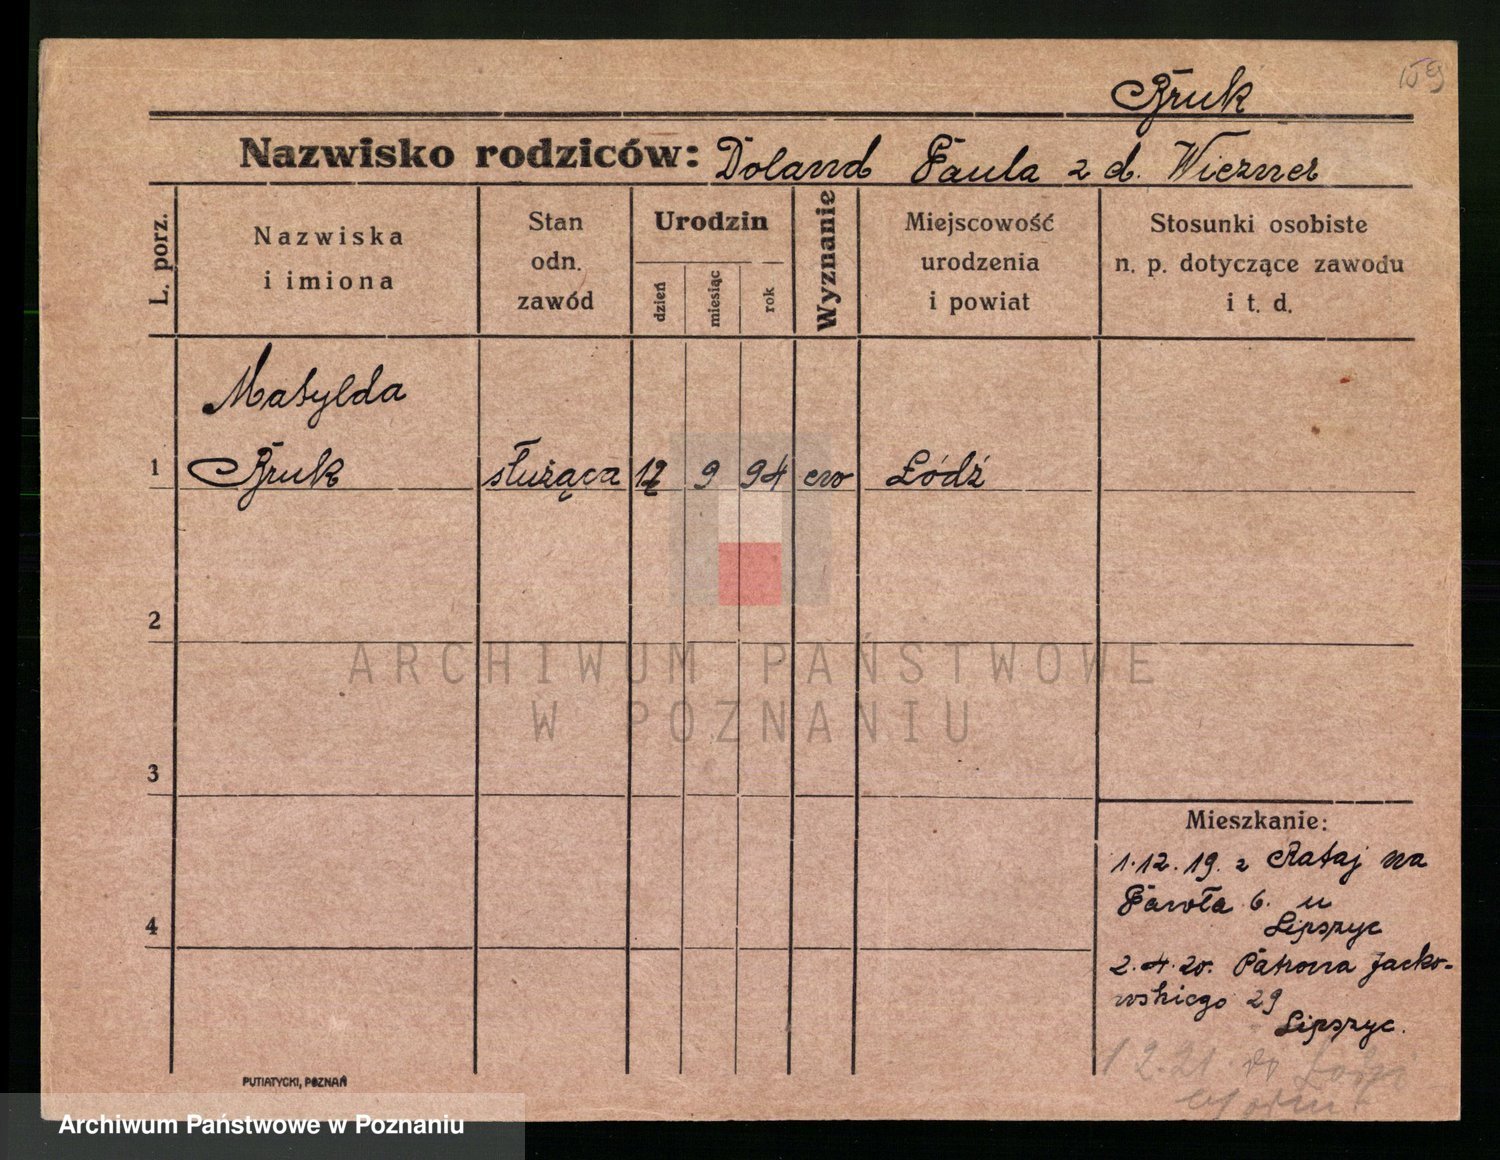 Bruk
159
Nazwisko rodziców: Doland Paula z d. Wiezner
L. porz.
Nazwiska
i imiona
Stan
odn.
zawód
Urodzin
dzień
miesiąc
rok
Wyznanie
Miejscowość
urodzenia
i powiat
Stosunki osobiste
n. p. dotyczące zawodu
i t. d.
Matylda
1 Bruk służąca 12 9 94 ew Łódź
2
3
4
ARCHIWUM PAŃSTWOWE
W POZNANIU
Mieszkanie:
1.12.19. z Rataj na
Pawła 6. u
Lipszyc
2.4.20. Patrona Jacko-
wskiego 29
Lipszyc.
1 2.21. do Łodzi
PUTIATYCKI, POZNAŃ
Archiwum Państwowe w Poznaniu